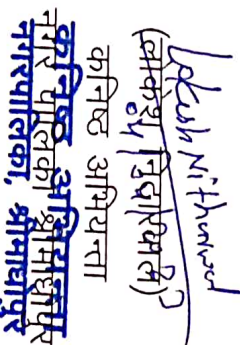 Lokesh Nitharwal
(लोकेश निठारवाल)
कनिष्ठ अभियन्ता
कनिष्ठ अभियन्ता
नगर पालिका श्रीमाधोपुर
नगरपालिका, श्रीमाधोपुर